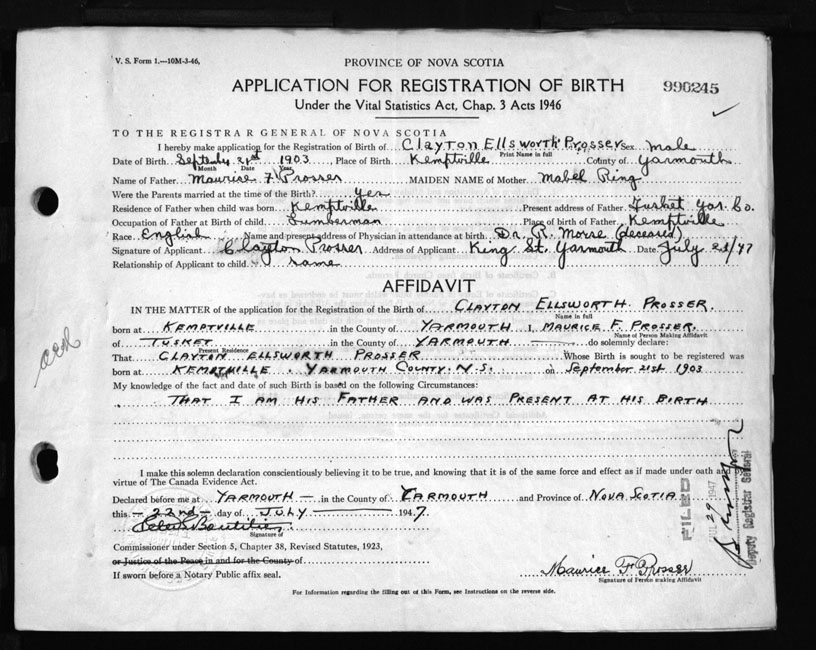 V. S. Form 1.—10M-3-46,
PROVINCE OF NOVA SCOTIA
APPLICATION FOR REGISTRATION OF BIRTH
990245
Under the Vital Statistics Act, Chap. 3 Acts 1946
TO THE REGISTRAR GENERAL OF NOVA SCOTIA
I hereby make application for the Registration of Birth of Clayton Ellsworth Prosser Sex male
Print Name in full
Date of Birth September 21st 1903 Place of Birth Kemptville County of Yarmouth
Month Date Year
Name of Father Maurice F Prosser MAIDEN NAME of Mother Mabel Ring
Were the Parents married at the time of the Birth? yes
Residence of Father when child was born Kemptville Present address of Father Tusket Yar. Co.
Occupation of Father at Birth of child Lumberman Place of birth of Father Kemptville
Race English Name and present address of Physician in attendance at birth Dr. R. (deceased)
Signature of Applicant Clayton Prosser Address of Applicant King St. Yarmouth Date July /47
Relationship of Applicant to child same
AFFIDAVIT
IN THE MATTER of the application for the Registration of the Birth of CLAYTON ELLSWORTH PROSSER.
Name in full
born at KEMPTVILLE in the County of YARMOUTH I, MAURICE F. PROSSER.
Name of Person Making Affidavit
of TUSKET in the County of YARMOUTH do solemnly declare:
Present Residence
That CLAYTON ELLSWORTH PROSSER Whose Birth is sought to be registered was
born at KEMPTVILLE, YARMOUTH COUNTY, N.S. on September 21st 1903
My knowledge of the fact and date of such Birth is based on the following Circumstances:
THAT I AM HIS FATHER AND WAS PRESENT AT HIS BIRTH
I make this solemn declaration conscientiously believing it to be true, and knowing that it is of the same force and effect as if made under oath and by
virtue of The Canada Evidence Act.
Declared before me at YARMOUTH — in the County of YARMOUTH and Province of NOVA SCOTIA
this — 22nd — day of JULY 1947
Signature of
Commissioner under Section 5, Chapter 38, Revised Statutes, 1923,
or Justice of the Peace in and for the County of
If sworn before a Notary Public affix seal.
Maurice F Prosser
Signature of Person making Affidavit
For Information regarding the filling out of this Form, see Instructions on the reverse side.
FILED
29 1947
Deputy Registrar General